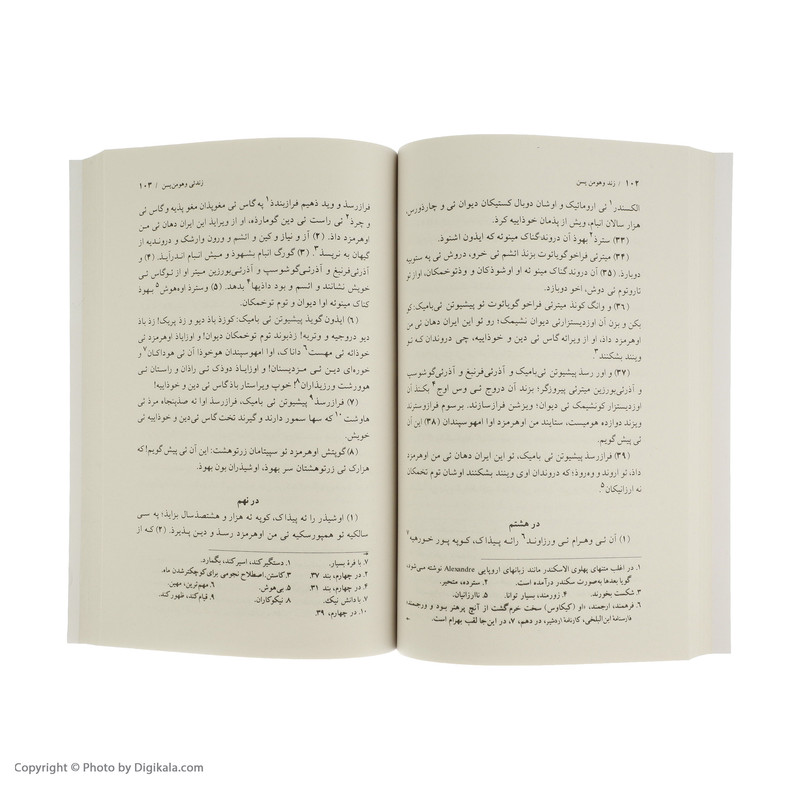 ۱۰۲ / زند وهومن یسن
الکسندر۱ ئی اروماتیک و اوشان دوبال کستیکان دیوان ئی و چارذورس،
هزار سالان انبام، ویش از پذمان خوذاییه کرد.
(۳۳) سترذ۲ بهوذ آن دروندگناک مینوئه که ایذون اشنوذ.
(۳۴) میترئی فراخو گویائوت بزند ائشم ئی خرو، دروش ئی په ستوب
دوبارذ. (۳۵) آن دروندگناک مینوئه او اوشوذکان و وذتوخمکان، اواز تو
تاروتوم ئی دوش، اخو دوبازد.
(۳۶) و وانگ کونذ میترئی فراخو گویائوت تو پیشیوتن ئی بامیک. کو
بکن و بزن آن اوزدیستزارئی دیوان نشیمک؛ رو تو این ایران دهان ئی من
اوهرمزد داذ، از او ویرائه گاس ئی دین و خوذاییه، چیی دروندان که تو
وینند بشکنند.۳
(۳۷) و اور رسذ پیشیوتن ئی بامیک و آذرئی‌فرنبغ و آذرئی‌گوشوسپ
و آذرئی‌بورزین میترئی پیروزگر؛ بزند آن دروج ئی وس اوج۴ بکنذ آن
اوزدیستزار کونشیمک ئی دیوان؛ ویزشن فرازسازند. برسوم فرازوسترند
ویزند دوازده هومیست، ستایند من اوهرمزد اوا امهوسپندان (۳۸) این آن
ئی پیش گویم.
(۳۹) فرازرسذ پیشیوتن ئی بامیک، تو این ایران دهان ئی من اوهرمزد
داذ، تو اروند و وه‌روذ؛ که دروندان اوی وینند بشکنند اوشان توم تخمکان
نه ارزانیکان.۵
در هشتم
(۱) آن ئی وهرام ئی ورزاوند۶ رائه پیداک، کویه پور خورهیه۷
در اغلب متنهای پهلوی الاسکندر مانند زبانهای اروپایی Alexandre نوشته می‌شود،
گویا بعدها به‌صورت سکندر درآمده است. ۲. سترده، متحیر.
۳. شکست بخورند. ۴. زورمند، بسیار توانا. ۵. ناارزانیان.
۶. فرهمند، ارجمند، «او (کیکاوس) سخت خرم‌گشت از آنچ پرهنر بود و ورجمند»
فارسنامهٔ ابن‌البلخی، کارنامهٔ اردشیر، در دهم، ۷، در این‌جا لقب بهرام است.
زندئی وهومن یسن / ۱۰۳
فرازرسذ و وید ذهیم فرازبندذ۱ په گاس ئی مغویذان مغو پذیه و گاس ئی
و چرذ۲ ئی راست ئی دین گومارذه، او از ویراید این ایران دهان ئی من
اوهرمزد داذ. (۳) آز و نیاز و کین و ائشم و ورون وارشک و دروندیه از
گیهان به نزیسد۳. (۳) گورگ انبام بشهوذ و میش انبام اندرآیذ. (۴) و
آذرئی‌فرنبغ و آذرئی‌گوشوسپ و آذرئی‌بورزین میتر او از نوگاس ئی
خویش نشانند و ائسم و بود داذیها۴ بدهد. (۵) وسترذ اوه‌هوش۵ بهوذ
کناک مینوئه اوا دیوان و توم توخمکان.
(۶) ایذون گویذ پیشیوتن ئی بامیک: کوزذ باذ دیو و زذ پریک! زذ باذ
دیو دروجیه و وتریه! زذبوند توم توخمکان دیوان! و اوزایاذ اوهرمزد ئی
خوذائه ئی مهست۶ داناک، اوا امهوسپندان هوخوذا آن ئی هوداکان۷ و
خوره‌ای دین ئی مزدیستان! و اوزایاذ دوذک ئی راذان و راستان ئی
هوورشت ورزیذاران۸! خوب ویراستار باذگاس ئی دین و خوذاییه!
(۷) فرازرسذ۹ پیشیوتن ئی بامیک، فرازرسذ اوا صذپنجاه مرذ ئی
هاوشت۱۰ که سها سمور دارند و گیرند تخت گاس ئی دین و خوذاییه ئی
خویش.
(۸) گویتش اوهرمزد تو سپیتامان زرتوهشت: این آن ئی پیش گویم! که
هزارک ئی زرتوهشتان سر بهوذ، اوشیذران بون بهوذ.
در نهم
(۱) اوشیذر را ئه پیذاک، کویه ئه هزار و هشتصذسال بزاید؛ په سی
سالکیه تو همپورسکیه ئی من اوهرمزد رسذ و دین پذیرذ. (۲) که از
۷. با فرهٔ بسیار. ۱. دستگیر کند، اسیر کند، بگمارد.
۲. در چهارم، بند ۳۷. ۳. کاستن، اصطلاح نجومی برای کوچکترشدن ماه.
۴. در چهارم، بند ۳۱. ۵. بی‌هوش. ۶. مهم‌ترین، مهین.
۷. با دانش نیک. ۸. نیکوکاران. ۹. قیام کند، ظهور کند.
۱۰. در چهارم، ۳۹.
Copyright © Photo by Digikala.com